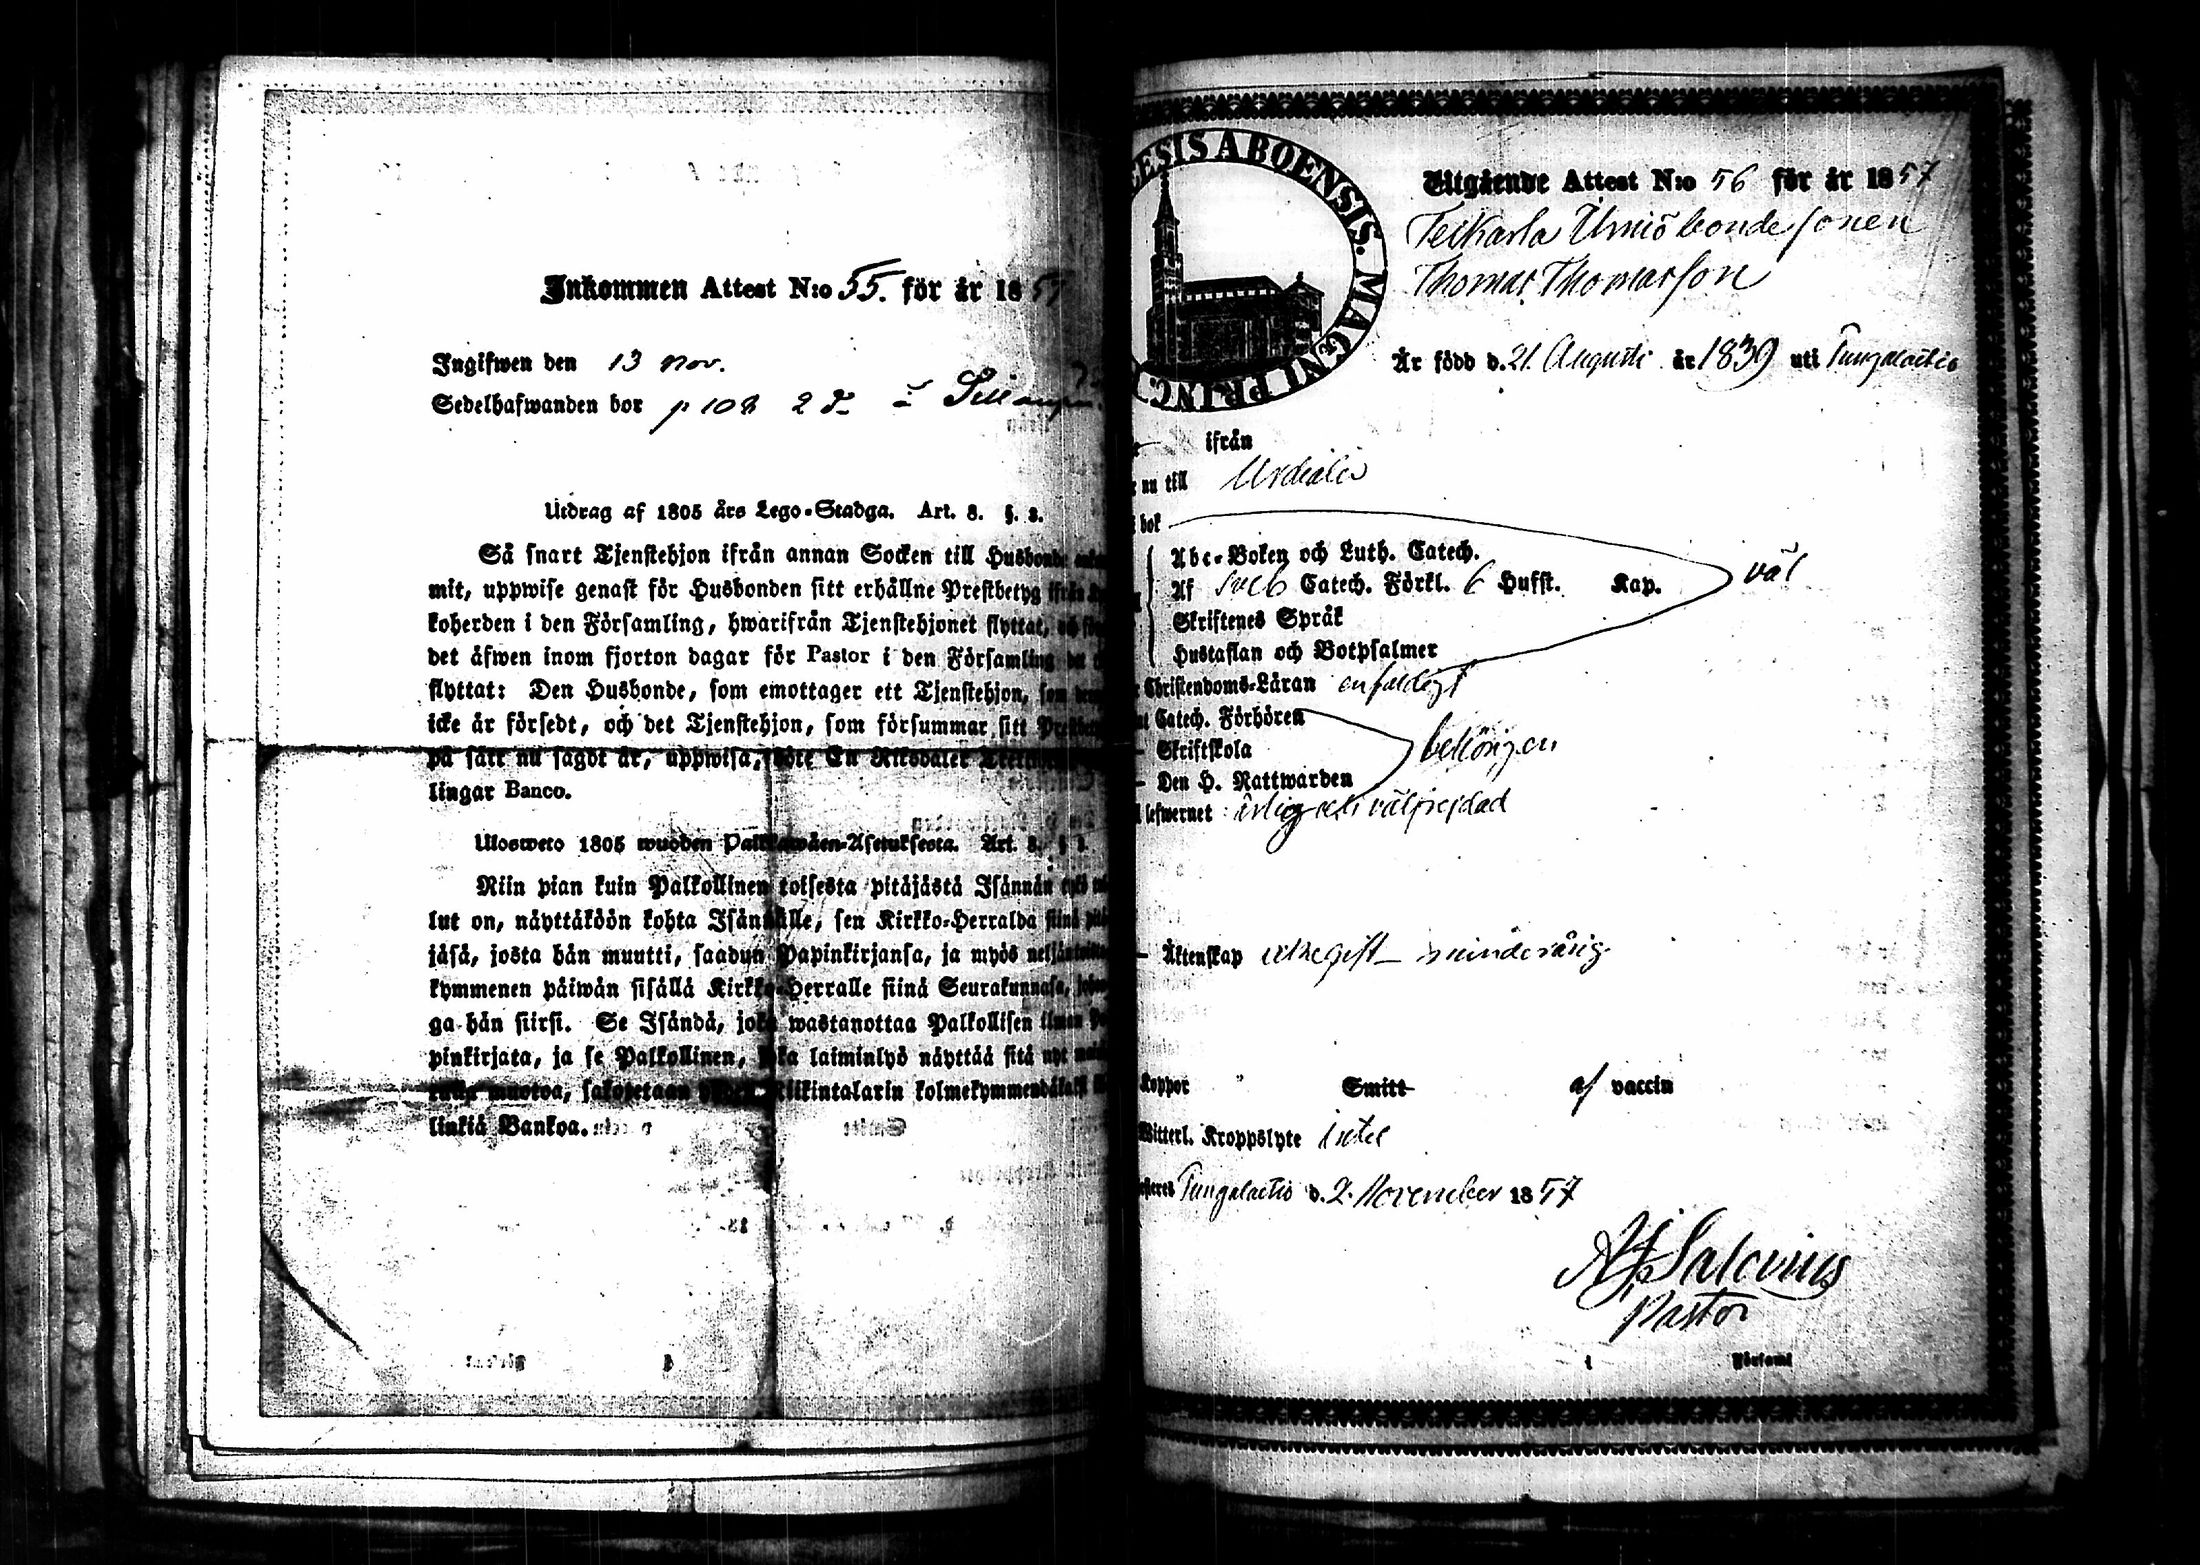 Inkommen Attest N:o 55. för år 1857
Ingifwen den 13 nov.
Sedelhafwanden bor p 108 2 i
Utdrag af 1805 års Lego-Stadga. Art. 8. §. 3.
Så snart Tjenstehjon ifrån annan Socken till Husbonde
mit, uppwise genast för Husbonden sitt erhållne Prestbetyg ifrån
koherden i den Församling, hwarifrån Tjenstehjonet flyttat,
det äfwen inom fjorton dagar för Pastor i den Församling
flyttat: Den Husbonde, som emottager ett Tjenstehjon, som
icke är försedt, och det Tjenstehjon, som försummar sitt
på sätt nu sagdt är, uppwisa, böte En Riksdaler
lingar Banco.
Ulosweto 1805 wuoden Palkkawäen-Asetuksesta. Art. 8. § 3.
Niin pian kuin Palkollinen toisesta pitäjästä Isännän tykö
lut on, näyttäköön kohta Isännälle, sen Kirkko-Herralda siinä
jäsä, josta hän muutti, saadun Papinkirjansa, ja myös
kymmenen päiwän sisällä Kirkko-Herralle siinä Seurakunnasa,
ga hän siirsi. Se Isändä, joka wastanottaa Palkollisen ilman
pinkirjata, ja se Palkollinen, joka laiminlyö näyttää sitä nyt
muotoa, sakotetaan Riikintalarin kolmekymmendäkaksi
linkiä Bankoa.
ESIS ABOENSIS. MAGNI PRINC.
Utgående Attest N:o 56 för år 1857
bondesonen
Thomas Thomasson
Är född d. 21 Augusti år 1839 uti Pungalaitio
ifrån
nu till Urdiala
bok
Abc-Boken och Luth. Catech.
Af Sveb Catech. Förkl. 6 Hufst. Kap. väl
Skriftenes Språk
Hustaflan och Botpsalmer
Christendoms-Läran enfaldigt
Catech. Förhören
Skriftskola behörigen
Den H. Nattwarden
lefwernet ärlig och välfrejdad
Äktenskap ickegift minderårig
Koppor Smitt af vaccin
Witterl. Kroppslyte intet
Pungalaitio d. 2. November 1857
Salovius
Pastor
1 Församl